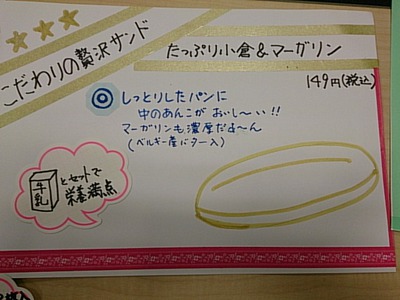 こだわりの贅沢サンド
たっぷり小倉&マーガリン
149円(税込)
しっとりしたパンに
中のあんこがおいし〜い!!
マーガリンも濃厚だよ〜ん
(ベルギー産バター入)
牛乳
とセットで
栄養満点